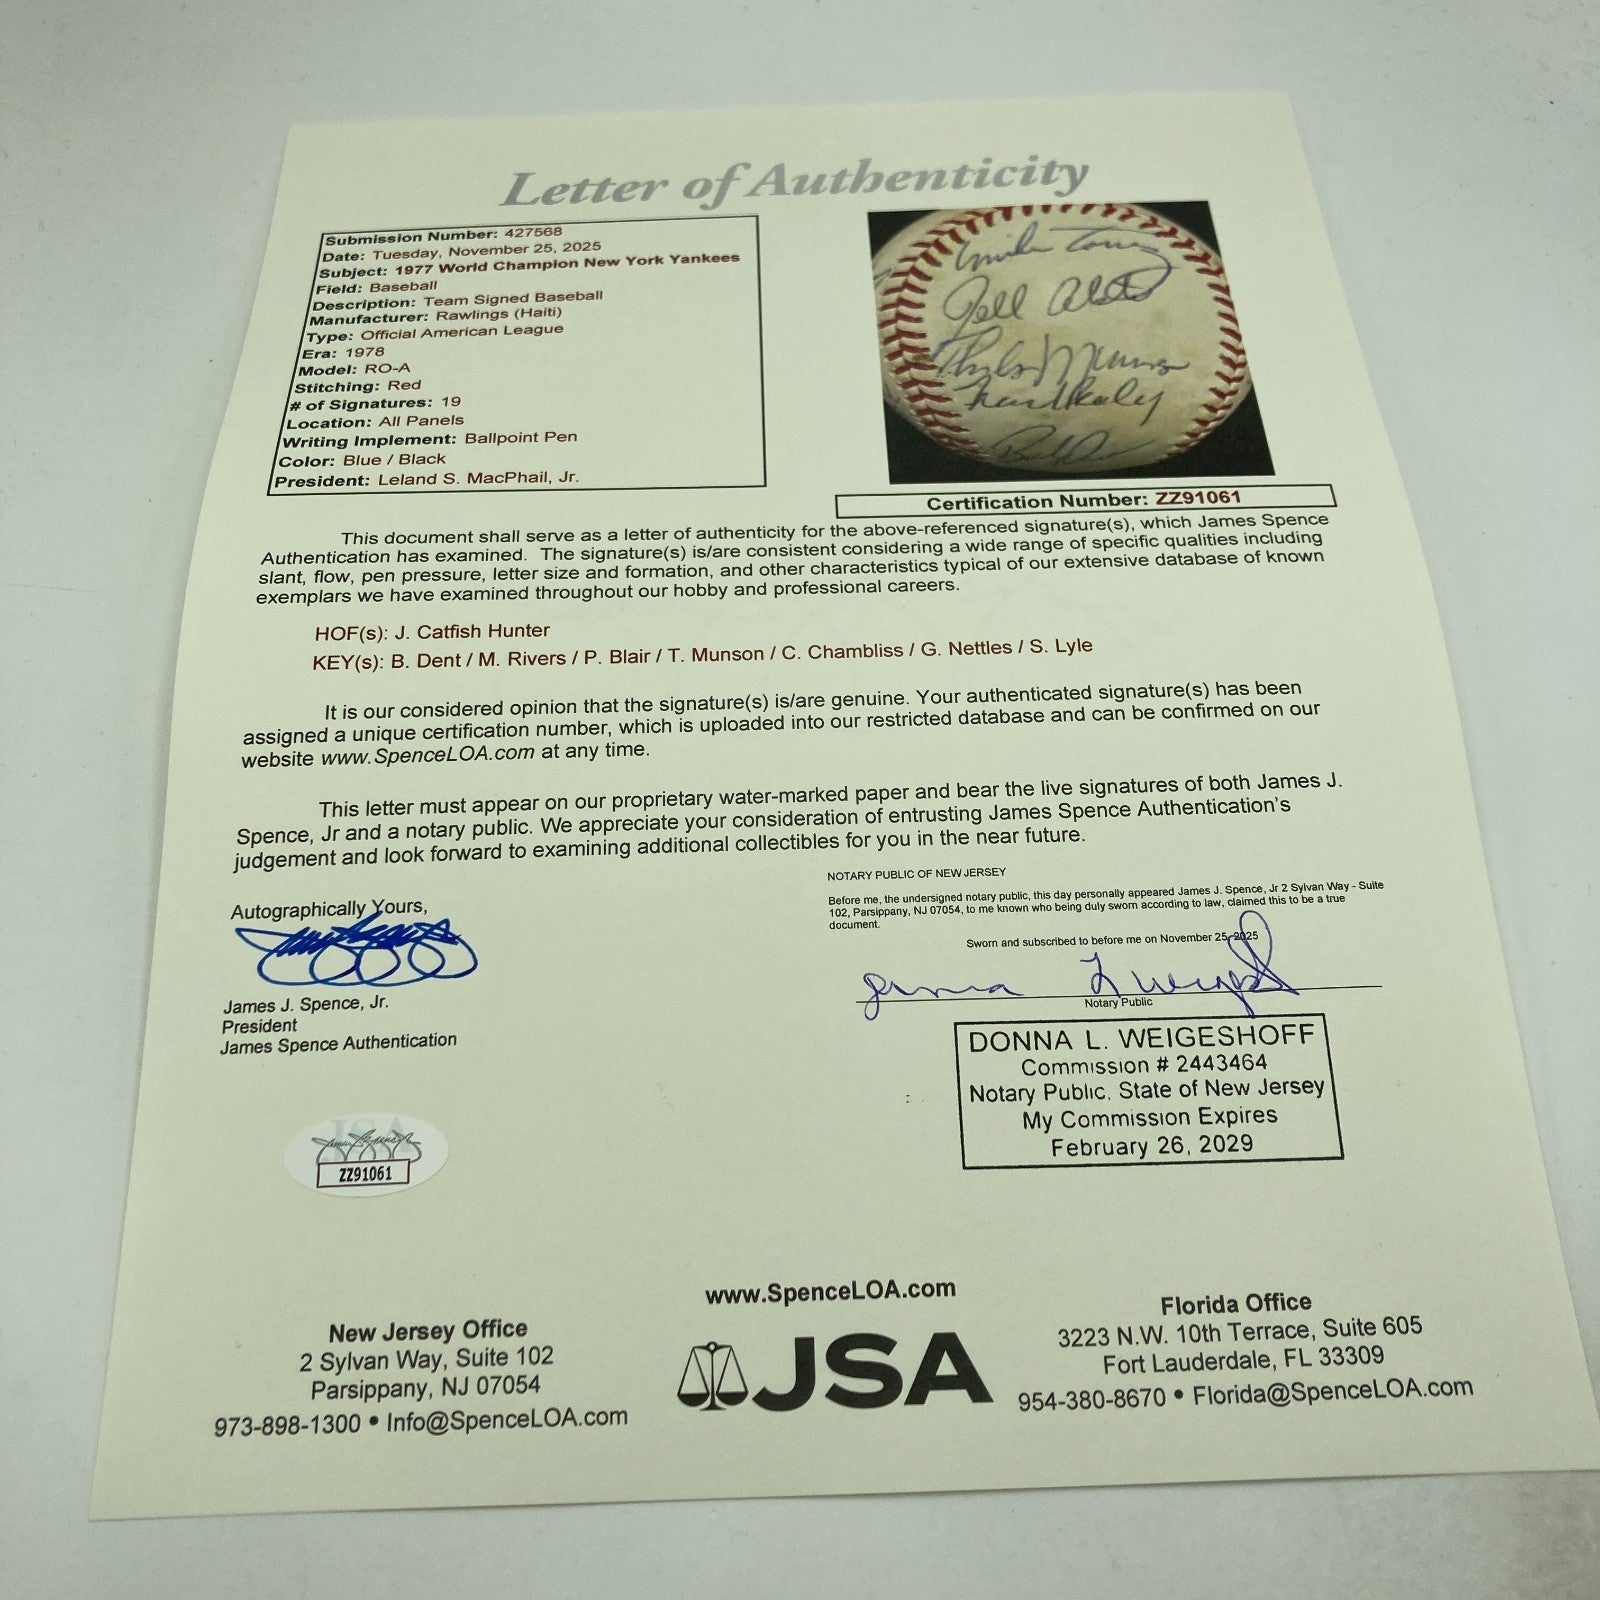 Letter of Authenticity
Submission Number: 427568
Date: Tuesday, November 25, 2025
Subject: 1977 World Champion New York Yankees
Field: Baseball
Description: Team Signed Baseball
Manufacturer: Rawlings (Haiti)
Type: Official American League
Era: 1978
Model: RO-A
Stitching: Red
# of Signatures: 19
Location: All Panels
Writing Implement: Ballpoint Pen
Color: Blue / Black
President: Leland S. MacPhail, Jr.
Mike Torrez
Thurman Munson
Fran Healy
Certification Number: ZZ91061
This document shall serve as a letter of authenticity for the above-referenced signature(s), which James Spence
Authentication has examined. The signature(s) is/are consistent considering a wide range of specific qualities including
slant, flow, pen pressure, letter size and formation, and other characteristics typical of our extensive database of known
exemplars we have examined throughout our hobby and professional careers.
HOF(s): J. Catfish Hunter
KEY(s): B. Dent / M. Rivers / P. Blair / T. Munson / C. Chambliss / G. Nettles / S. Lyle
It is our considered opinion that the signature(s) is/are genuine. Your authenticated signature(s) has been
assigned a unique certification number, which is uploaded into our restricted database and can be confirmed on our
website www.SpenceLOA.com at any time.
This letter must appear on our proprietary water-marked paper and bear the live signatures of both James J.
Spence, Jr and a notary public. We appreciate your consideration of entrusting James Spence Authentication's
judgement and look forward to examining additional collectibles for you in the near future.
Autographically Yours,
James J. Spence, Jr.
President
James Spence Authentication
NOTARY PUBLIC OF NEW JERSEY
Before me, the undersigned notary public, this day personally appeared James J. Spence, Jr 2 Sylvan Way - Suite
102, Parsippany, NJ 07054, to me known who being duly sworn according to law, claimed this to be a true
document.
Sworn and subscribed to before me on November 25, 2025
Notary Public
DONNA L. WEIGESHOFF
Commission # 2443464
Notary Public, State of New Jersey
My Commission Expires
February 26, 2029
JSA
ZZ91061
www.SpenceLOA.com
New Jersey Office
2 Sylvan Way, Suite 102
Parsippany, NJ 07054
973-898-1300 • Info@SpenceLOA.com
JSA
Florida Office
3223 N.W. 10th Terrace, Suite 605
Fort Lauderdale, FL 33309
954-380-8670 • Florida@SpenceLOA.com